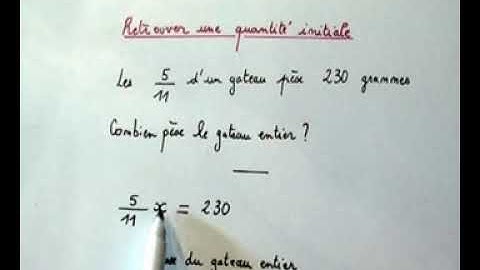 Retrouver une quantité initiale
Les 5/11 d'un gateau pèse 230 grammes
Combien pèse le gateau entier ?
5/11 x = 230
du gateau entier